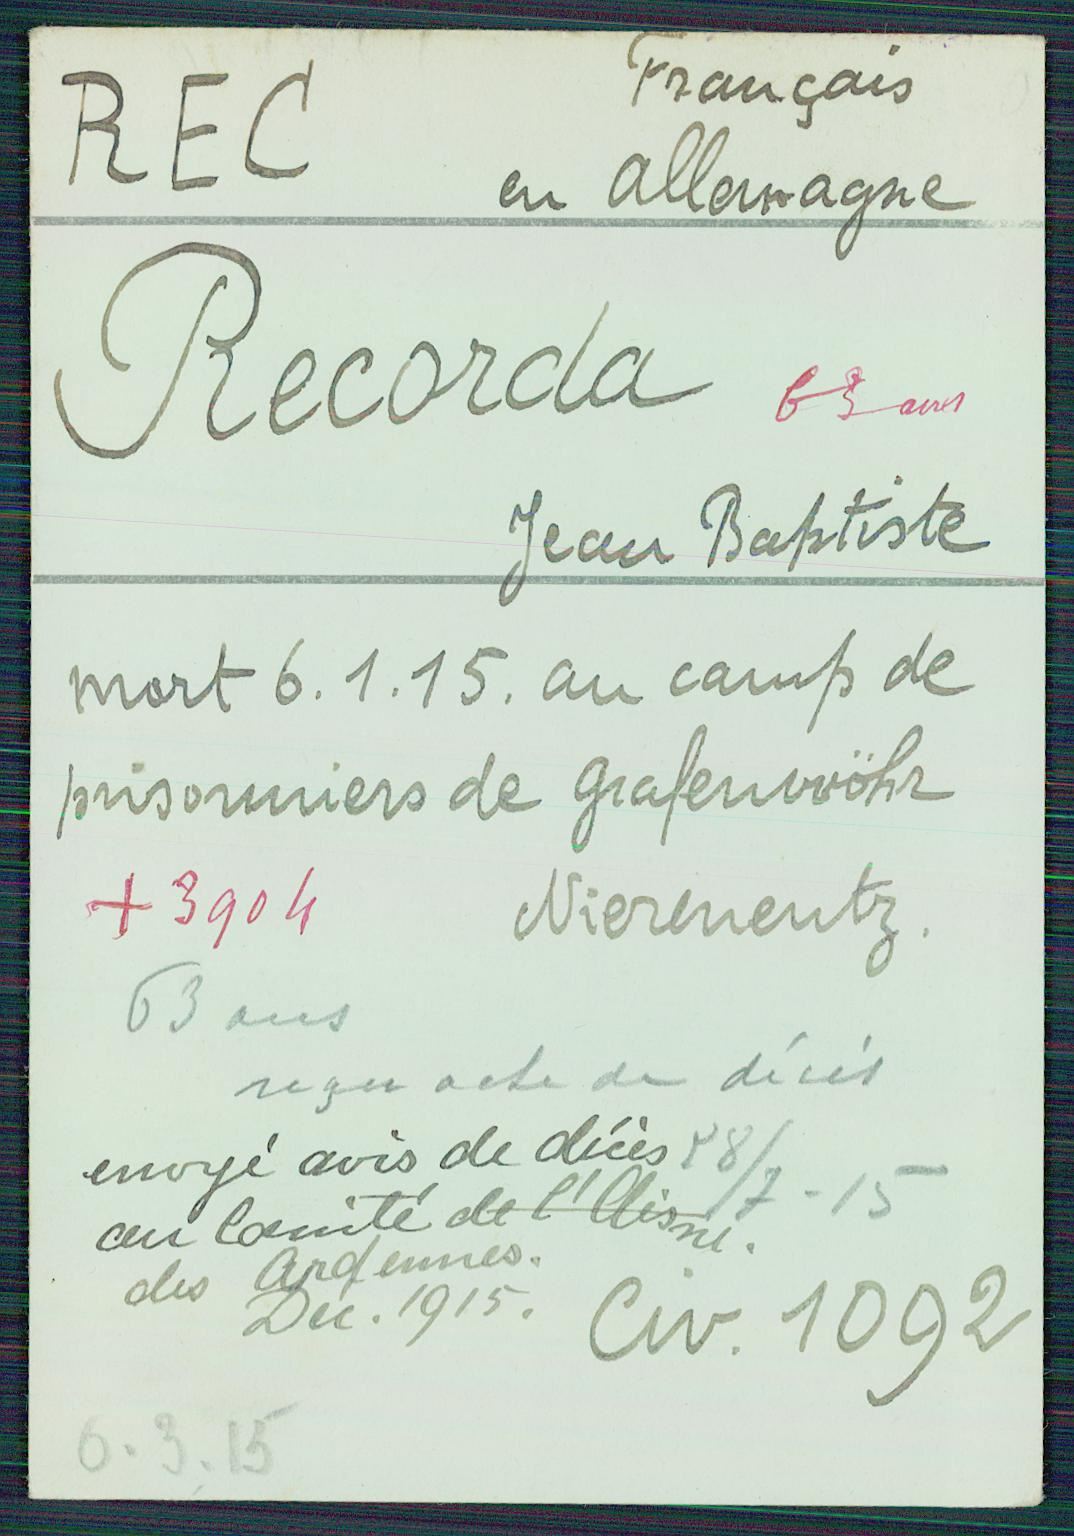 REC
Français
en Allemagne
Recorda
63 ans
Jean Baptiste
mort 6.1.15. au camp de
prisonniers de Grafenwöhr
+ 3904
Nierenentz.
63 ans
reçu acte de décès
envoyé avis de décès 28/7-15
au Comité de l'Aisne.
des Ardennes.
Déc. 1915.
Civ. 1092
6.3.15